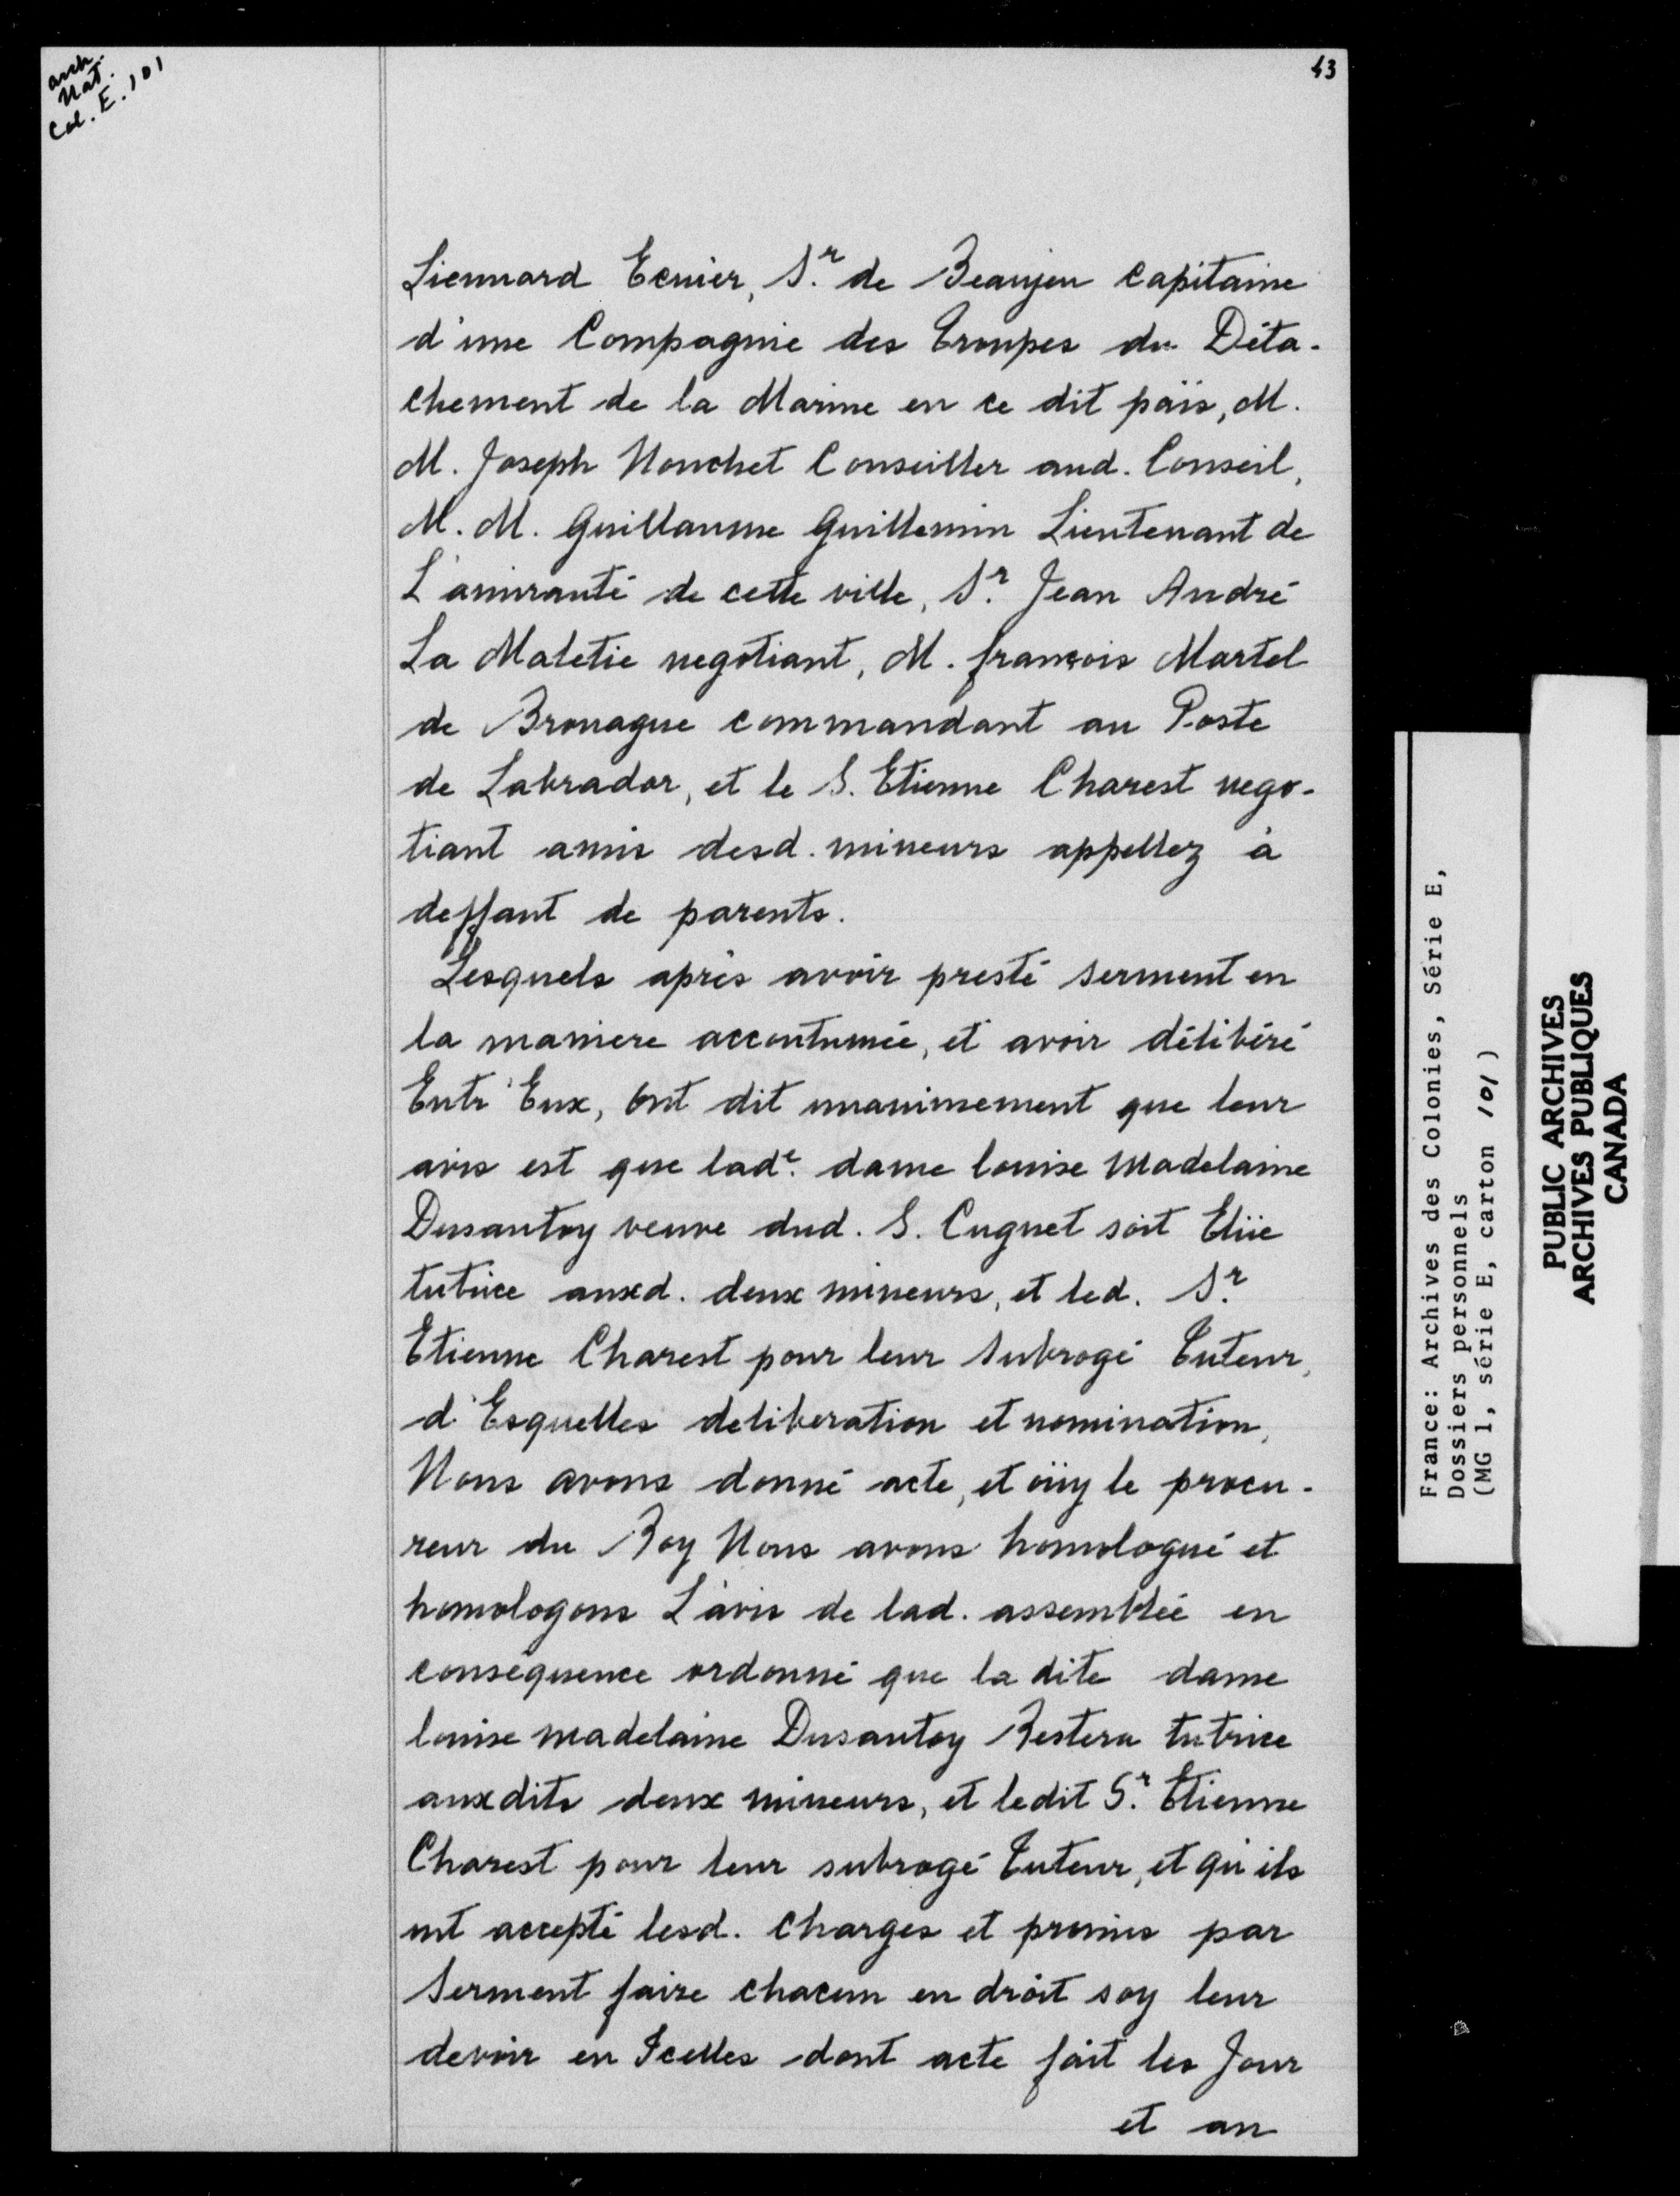 arch.
Nat.
Col. E. 101
43
Liennard Ecuier, Sr. de Beaujeu Capitaine
d'une Compagnie des Troupes du Déta-
chement de la Marine en ce dit païs, M.
M. Joseph Nouchet Conseiller aud. Conseil,
M. M. Guillaume Guillemin Lieutenant de
L'amirauté de cette ville, Sr. Jean André
La Maletie negotiant, M. françois Martel
de Brouague commandant au Poste
de Labrador, et le S. Etienne Charest nego-
tiant amis desd. mineurs appellez à
deffaut de parents.
Lesquels après avoir presté serment en
la maniere accoutumée, et avoir délibéré
Entr'Eux, Ont dit unanimement que leur
avis est que lade. dame louise Madelaine
Dusautoy veuve dud. S. Cugnet soit Elüe
tutrice auxd. deux mineurs, et led. Sr.
Etienne Charest pour leur subrogé Tuteur,
d'Esquelles deliberation et nomination,
Nous avons donné acte, et oüy le procu-
reur du Roy Nous avons homologué et
homologons L'avis de lad. assemblée en
conséquence ordonné que la dite dame
louise madelaine Dusautoy Restera tutrice
auxdits deux mineurs, et ledit Sr. Etienne
Charest pour leur subrogé Tuteur, et qu'ils
ont accepté lesd. Charges et promis par
Serment faire chacun en droit soy leur
devoir en Icelles dont acte fait les Jour
et an
France: Archives des Colonies, Série E,
Dossiers personnels
(MG 1, série E, carton 101)
PUBLIC ARCHIVES
ARCHIVES PUBLIQUES
CANADA